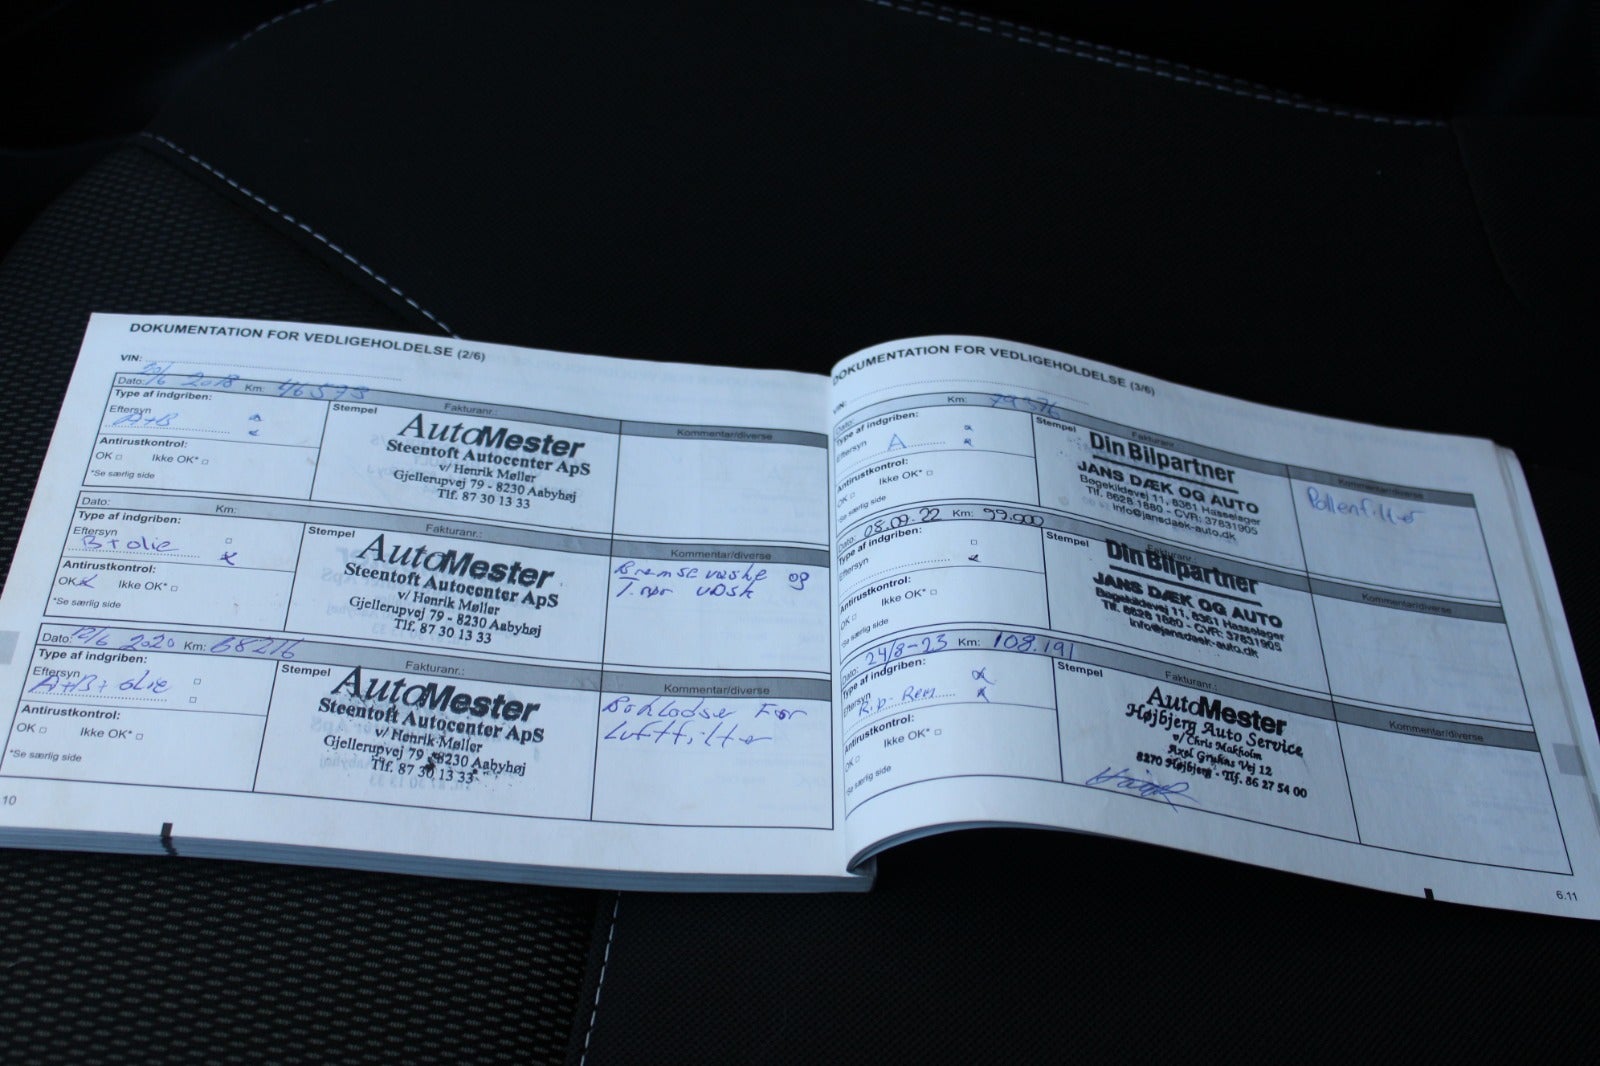 DOKUMENTATION FOR VEDLIGEHOLDELSE (2/6)
VIN:
Dato: 12/6 2018 Km: 46593
Type af indgriben:
Eftersyn
A+B
Antirustkontrol:
OK Ikke OK*
*Se særlig side
Stempel
Fakturanr.:
AutoMester
Steentoft Autocenter ApS
v/ Henrik Møller
Gjellerupvej 79 - 8230 Aabyhøj
Tlf. 87 30 13 33
Kommentar/diverse
Dato: Km:
Type af indgriben:
Eftersyn
B+olie
Antirustkontrol:
OK Ikke OK*
*Se særlig side
Stempel
AutoMester
Steentoft Autocenter ApS
v/ Henrik Møller
Gjellerupvej 79 - 8230 Aabyhøj
Tlf. 87 30 13 33
Kommentar/diverse
Bremsevæske og
Dato: 12/6 2020 Km: 68216
Type af indgriben:
Eftersyn
A+B+olie
Antirustkontrol:
OK Ikke OK*
*Se særlig side
Stempel
Fakturanr.:
AutoMester
Steentoft Autocenter ApS
v/ Henrik Møller
Gjellerupvej 79 - 8230 Aabyhøj
Tlf. 87 30 13 33
Kommentar/diverse
For
Luftfilter
10
DOKUMENTATION FOR VEDLIGEHOLDELSE (3/6)
VIN:
Dato: Km: 79376
Type af indgriben:
Eftersyn A
Antirustkontrol:
OK Ikke OK*
*Se særlig side
Stempel
Fakturanr.:
Din Bilpartner
JANS DÆK OG AUTO
Bøgekildevej 11, 8361 Hasselager
Tlf. 8628 1880 - CVR: 37831905
info@jansdaek-auto.dk
Kommentar/diverse
Pollenfilter
Dato: 08.09.22 Km: 99.000
Type af indgriben:
Eftersyn
Antirustkontrol:
OK Ikke OK*
*Se særlig side
Stempel
Fakturanr.:
Din Bilpartner
JANS DÆK OG AUTO
Bøgekildevej 11, 8361 Hasselager
Tlf. 8628 1880 - CVR: 37831905
info@jansdaek-auto.dk
Kommentar/diverse
Dato: 24/8-23 Km: 108.191
Type af indgriben:
Eftersyn
Antirustkontrol:
OK Ikke OK*
*Se særlig side
Stempel
Fakturanr.:
AutoMester
Højbjerg Auto Service
v/ Chris Makholm
Axel Gruhns Vej 12
8270 Højbjerg - Tlf. 86 27 54 00
Kommentar/diverse
6.11